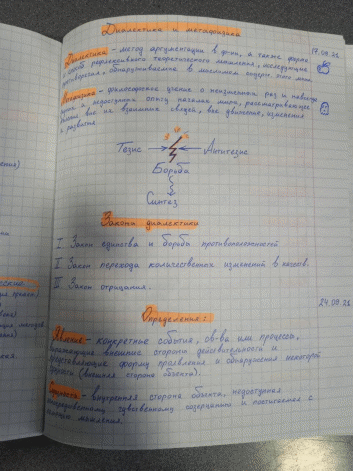 Диалектика и метафизика
17.09.21
Диалектика - метод аргументации в фил., а также форма
и способ рефлексивного теоретического мышления, исследующее
противоречия, обнаруживаемые в мыслимом содерж. этого мыш.
Метафизика - философское учение о неизменных раз и навсегда
и недоступных опыту началах мира, рассматривающее
вне их взаимных связей, вне движения, изменения
и развития.
Тезис Антитезис
Борьба
Синтез
Законы диалектики
I. Закон единства и борьбы противоположностей
II Закон перехода количественных изменений в качеств.
III Закон отрицания.
24.09.21
Определения:
Явление - конкретные события, св-ва или процессы,
выражающие внешние стороны действительности и
представляющие форму проявления и обнаружения некоторой
сущности (внешняя сторона объекта).
Сущность - внутренняя сторона объекта, недоступная
непосредственному чувственному созерцанию и постигаемая с
помощью мышления.